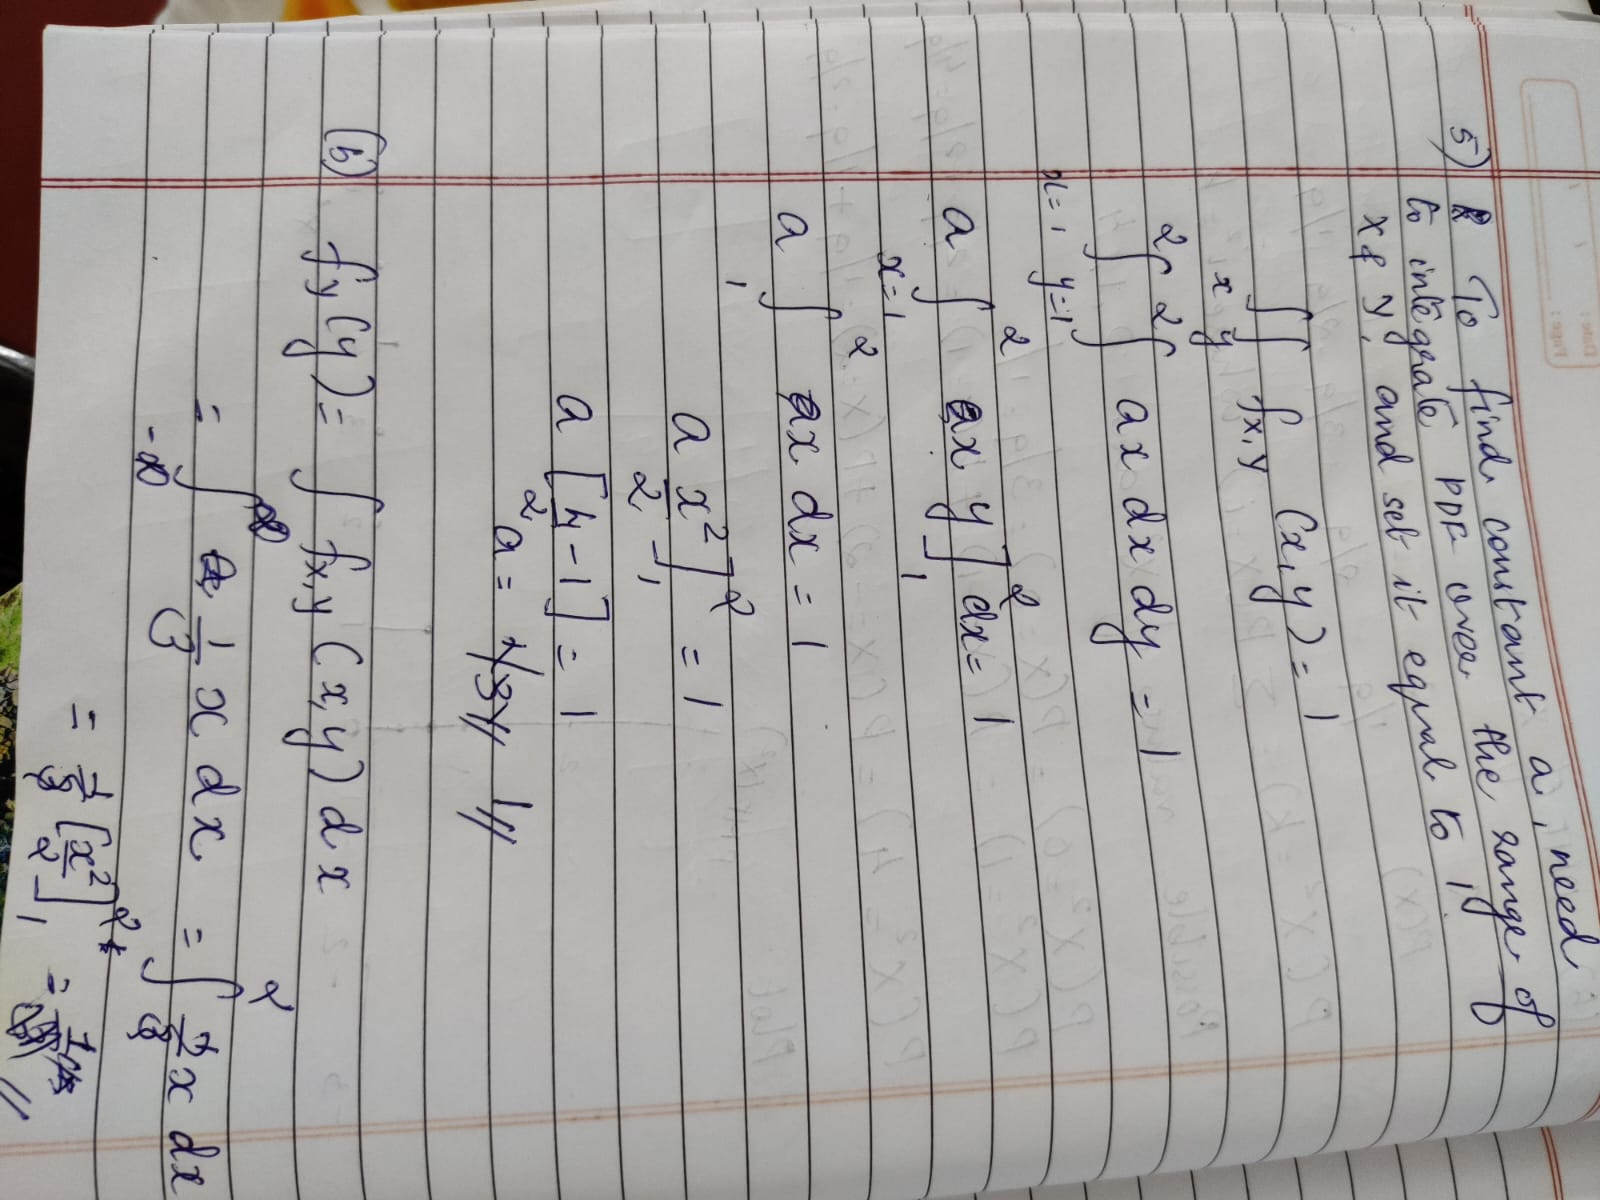 5) To find constant a, need
to integrate PDF over the range of
x & y, and set it equal to 1
∫∫ f x,y (x,y) = 1
x y
2 2
∫ ∫ ax dx dy = 1
x=1 y=1
2
a ∫ ax y]²₁ dx = 1
x=1
2
a ∫ ax dx = 1
1
a x²/2 ]²₁ = 1
a/2 [4-1] = 1
a =
(b) fy(y) = ∫ f x,y (x,y) dx
= ∫ 1/3 x dx = ∫² x dx
-∞
= [x²/2]²₁ =